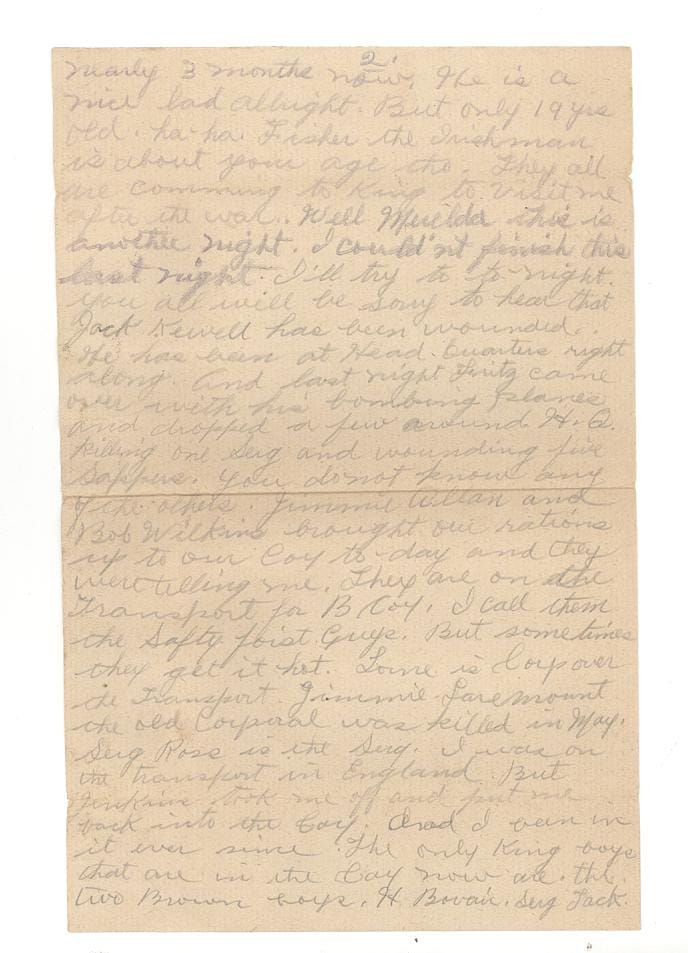 2.
nearly 3 months now. He is a
nice lad allright. But only 19 yrs
old. ha-ha. Fisher the Irishman
is about your age tho. They all
are comming to King to visit me
after the war. Well Murilda this is
another night. I could'nt finish this
last night. I'll try to to-night.
You all will be sorry to hear that
Jack Kewell has been wounded.
He has been at Head Quarters right
along. And last night Fritz came
over with his bombing planes
and dropped a few around H.Q.
killing one Serg and wounding five
Sappers. You do not know any
of the others. Jimmie Willan and
Bob Wilkins brought our rations
up to our Coy to-day and they
were telling me. They are on the
Transport for B Coy. I call them
the Safty foist Guys. But sometimes
they get it hot. Lorne is Corp over
the Transport. Jimmie Laremount
the old Corporal was killed in May.
Serg Ross is the Serg. I was on
the transport in England. But
Jenkins took me off and put me
back into the Coy. And I been in
it ever since. The only King boys
that are in the Coy now are the
two Brown boys. H Bovair. Serg Jack.